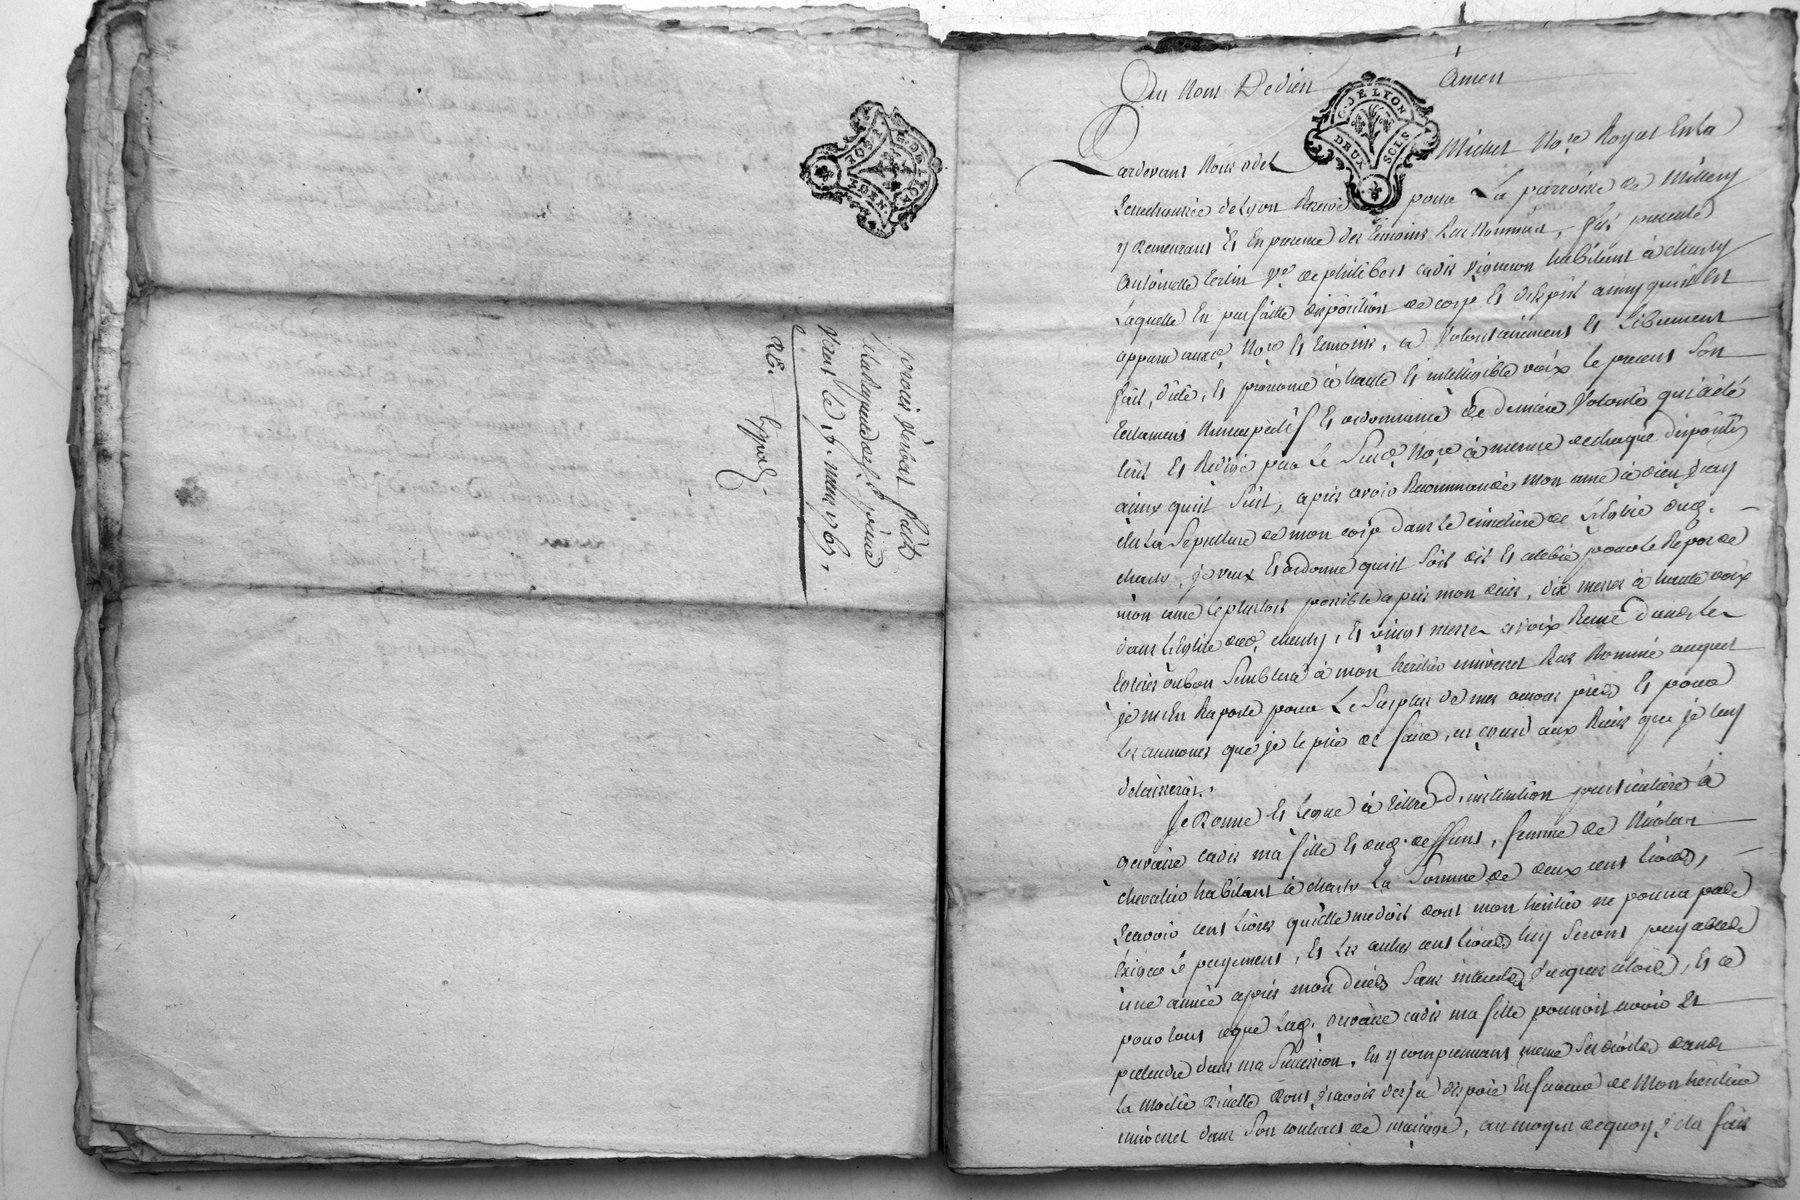 procès verbal fait
vant le 7 mars 1767,
G. DE LYON
DEUX SOLS
Au Nom De dieu Amen
Pardevant Nous Michel No.re Royal En la
Senechaussée de Lyon Reservé pour La parroisse de Millery
y demeurant Et En presence des temoins Bas Nommés, fut presente
Antoinette V.e de philibert cadis vigneron habitant à charly
Laquelle En parfaitte disposition de corps Et desprit ainsy quil Est
apparu auxd. No.re Et temoins, a Volontairement Et Librement
fait, dicté, Et prononcé à haute Et intelligible voix le present Son
testament Nuncupatif Et ordonnance de derniere Volonté qui a été
Ecrit Et Redigé par le Susd. No.re à mesure de chaque disposition
ainsy quil Suit, apres avoir Recommandé mon ame à dieu, jay
élu La Sepulture de mon corps dans le cimetiere de L'Eglise dud.
charly, je veux Et ordonne quil Soit dit Et celebré pour le Repos de
mon ame le plustost possible apres mon deces, dix messes à haute voix
dans L'Eglise dud. charly, Et vingt messes à voix basse dans les
Eglises ou bon Semblera à mon heritier universel Bas Nommé auquel
je m'En Raporte pour Le Surplus de mes œuvres pies Et pour
les aumones que je le prie de faire, eu egard aux biens que je luy
delaisserai.
Je Donne Et Legue à titre d'institution particuliere à
cadis ma fille Et dud. deffunt, femme de Nicolas
chevalier habitant à charly La Somme de deux cent livres,
Scavoir cent livres quelle me doit dont mon heritier ne pourra pas
Exiger le payement, Et Les autres cent livres luy Seront payables
une année apres mon deces Sans interests jusques alors, Et ce
pour tout ce que Lad. cadis ma fille pourroit avoir Et
pretendre dans ma Succession, En y comprennant meme Ses droits dans
la moitié dicelle dont j'avois desja disposé En faveur de Mon heritier
universel dans Son contract de mariage, au moyen dequoy, je la fais